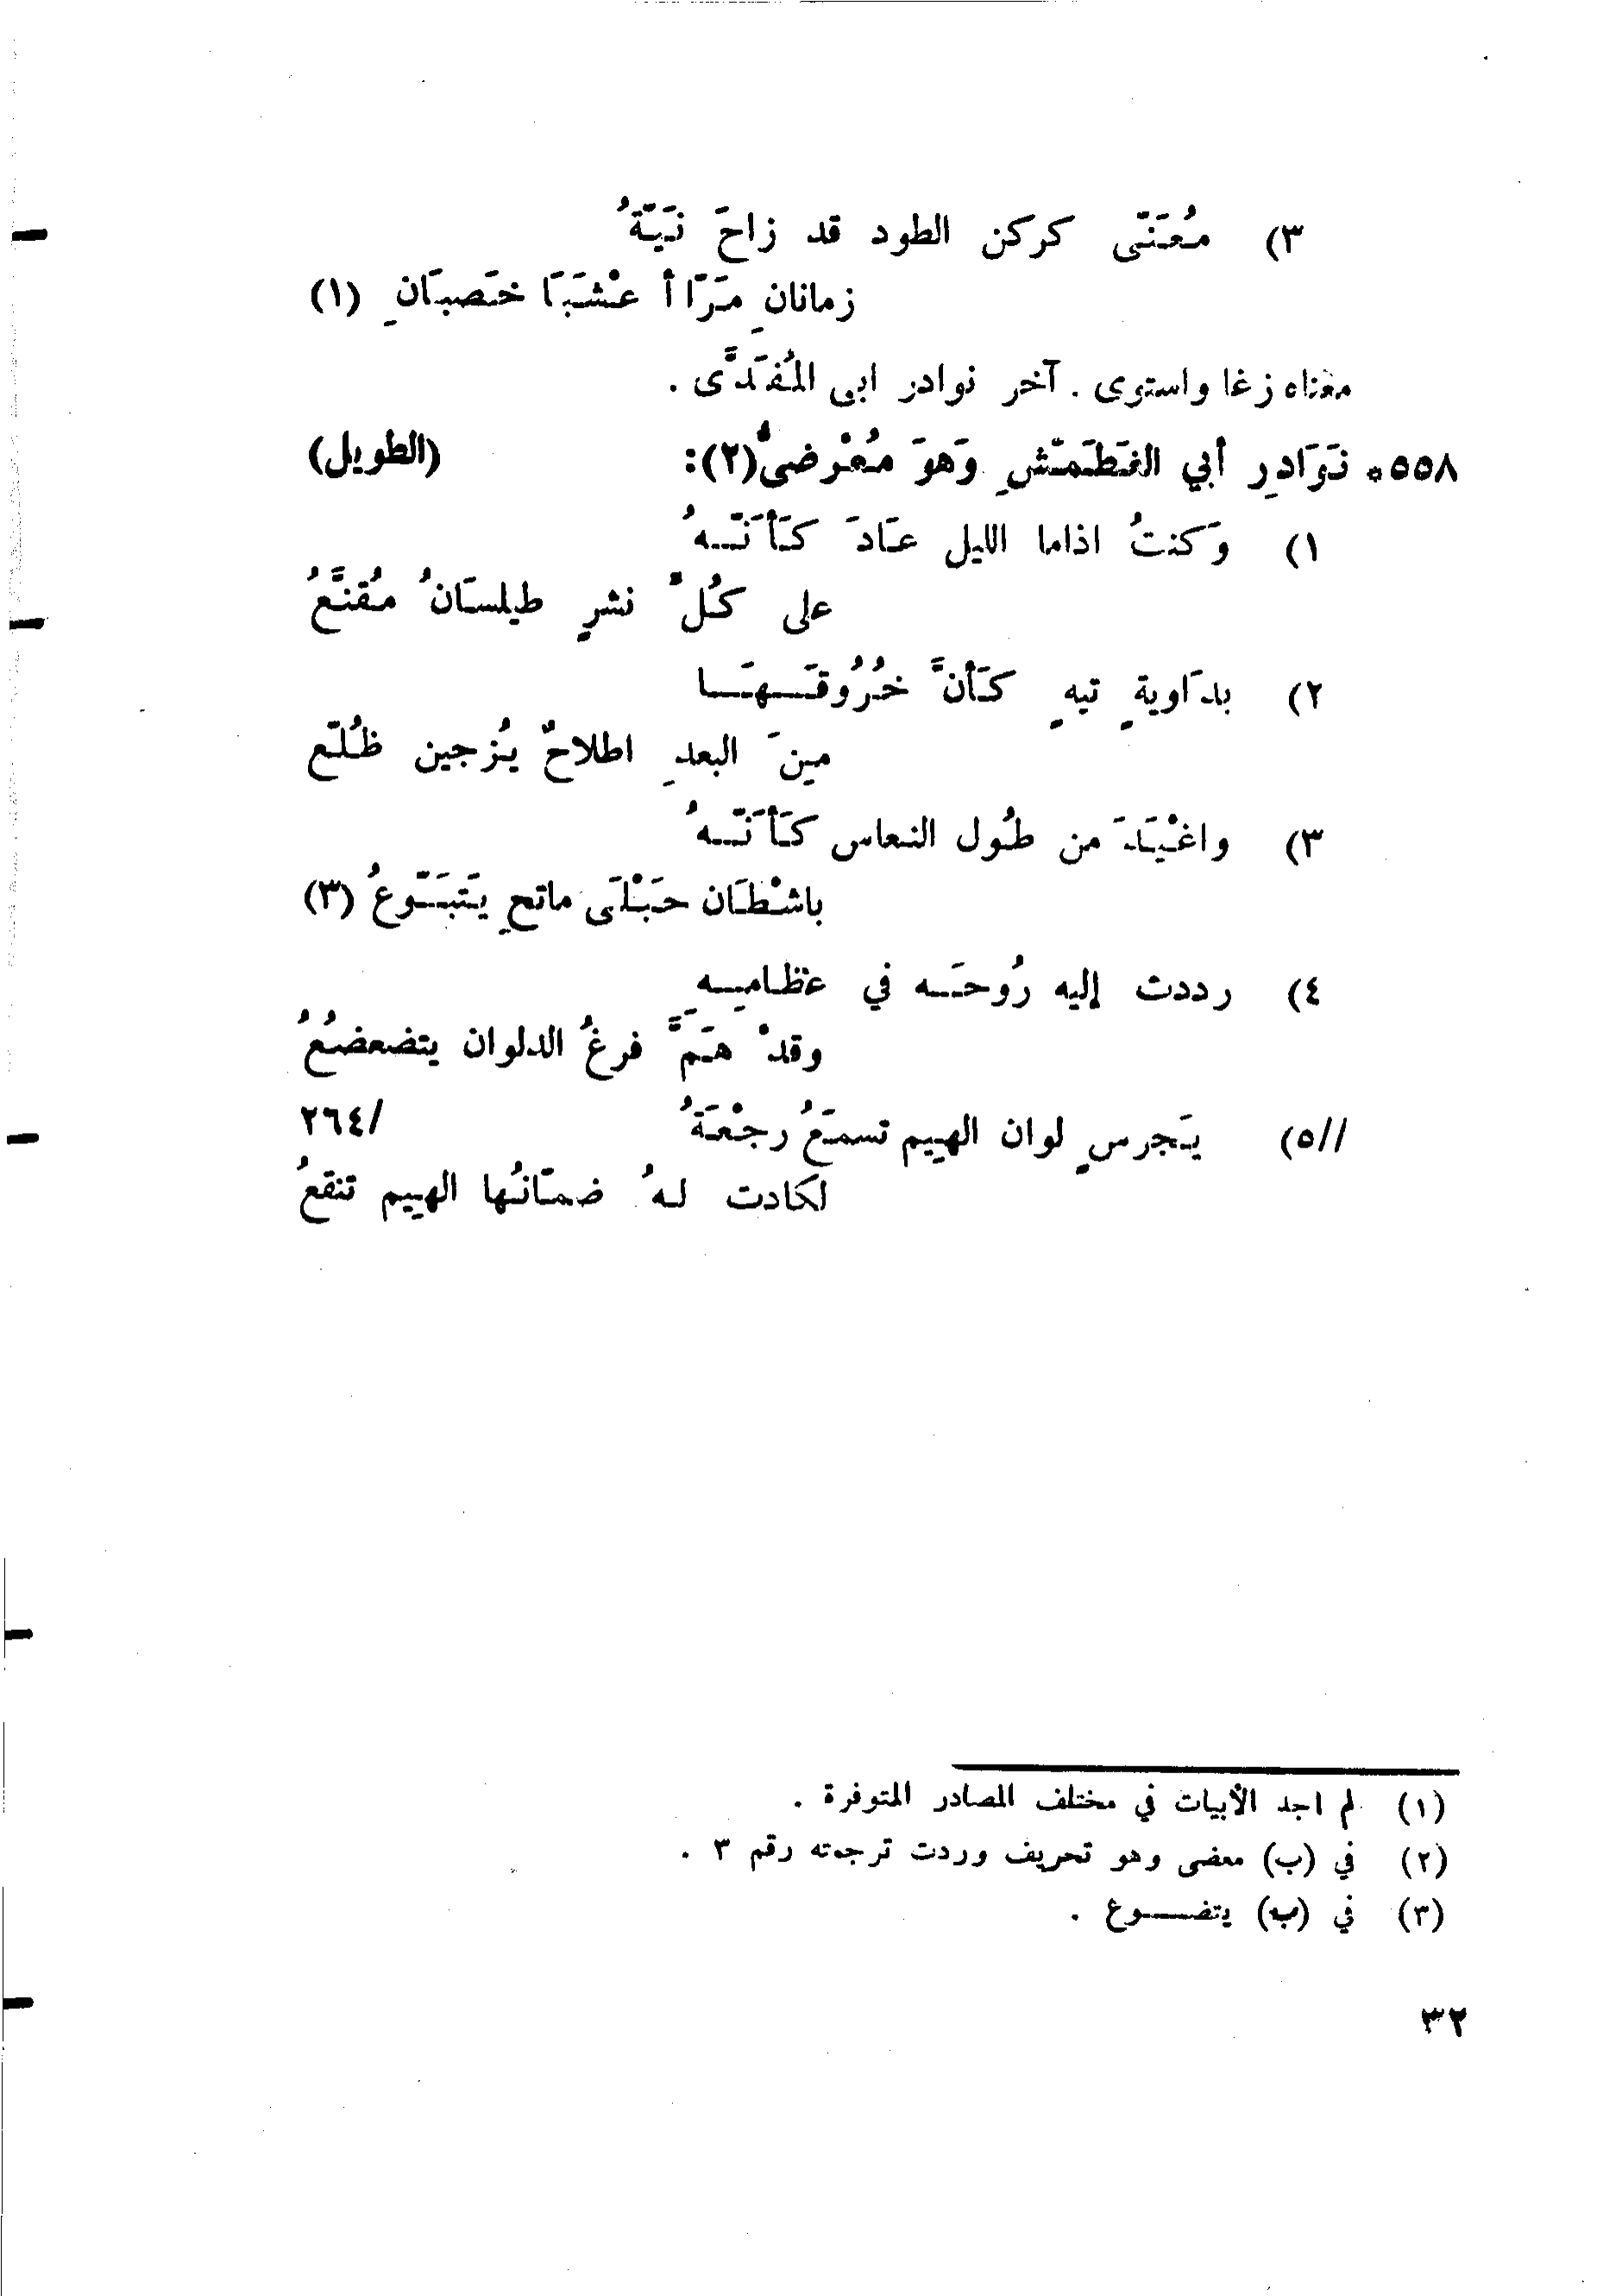 ٣) مُعَنّى كركن الطود قد زاحَ نَيّهُ
زمانانِ مَرّا أ عْشَبَا خَصبَانِ (١)
معناه زغا واستوى . آخر نوادر ابى المُفَدَّى .
٥٥٨* نَوَادرِ أبي الغَطَمّشِ وَهوَ مُعْرضىُ(٢): (الطويل)
١) وَكنتُ اذاما الليل عَادَ كَأنّهُ
على كُلّ نشرٍ طيلسَانُ مُقنَّعُ
٢) بدَاويةٍ تيهٍ كَأنَّ خُرُوقَهَا
مِنَ البعدِ اطلاحٌ يُزجين ظُلّع
٣) واغْيَدَ من طُول النعاس كَأنّهُ
باشْطَان حَبْلَى ماتحٍ يَتَبَوّعُ (٣)
٤) رددت إليه رُوحَه في عظامِهِ
وقدْ هَمَّ فرغُ الدلوان يتضعضعُ
//٥) يَجرسٍ لوان الهيم تسمَعُ رجْعَهُ /٢٦٤
لكادت لهُ ضمّانُها الهيم تنقعُ
(١) لم اجد الأبيات في مختلف المصادر المتوفرة .
(٢) في (ب) معضى وهو تحريف وردت ترجمته رقم ٣ .
(٣) في (ب) يتضوع .
٣٢